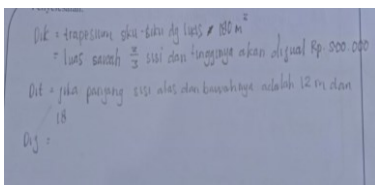 Dik = trapesium siku-siku dg luas 180 m²
= luas sawah 2/3 sisi dan tingginya akan dijual Rp. 500.000
Dit = jika panjang sisi atas dan bawahnya adalah 12 m dan
18
Dij =